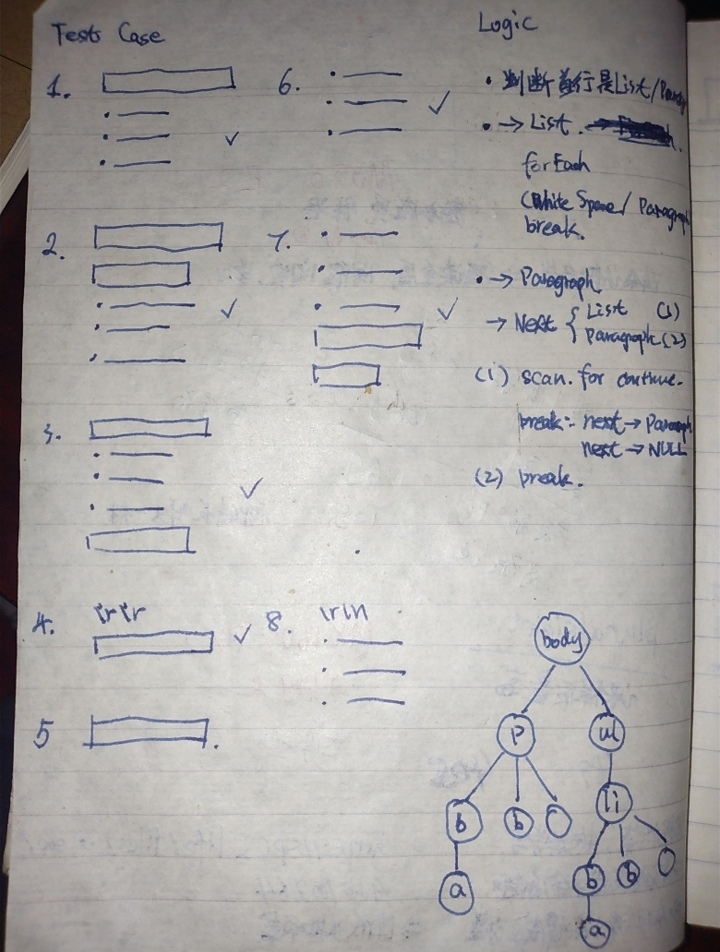 Tests Case
1.
2.
3.
4. \r\r
5
6.
7.
8. \r\n
Logic
· 判断首行是List/
· → List.
forEach
(White Space/ Paragraph
break.
· → Paragraph
→ Next { List (1)
paragraph (2)
(1) scan. for continue.
break: next → Paragraph
next → NULL
(2) break.
body
P ul
b b li
a b b
a